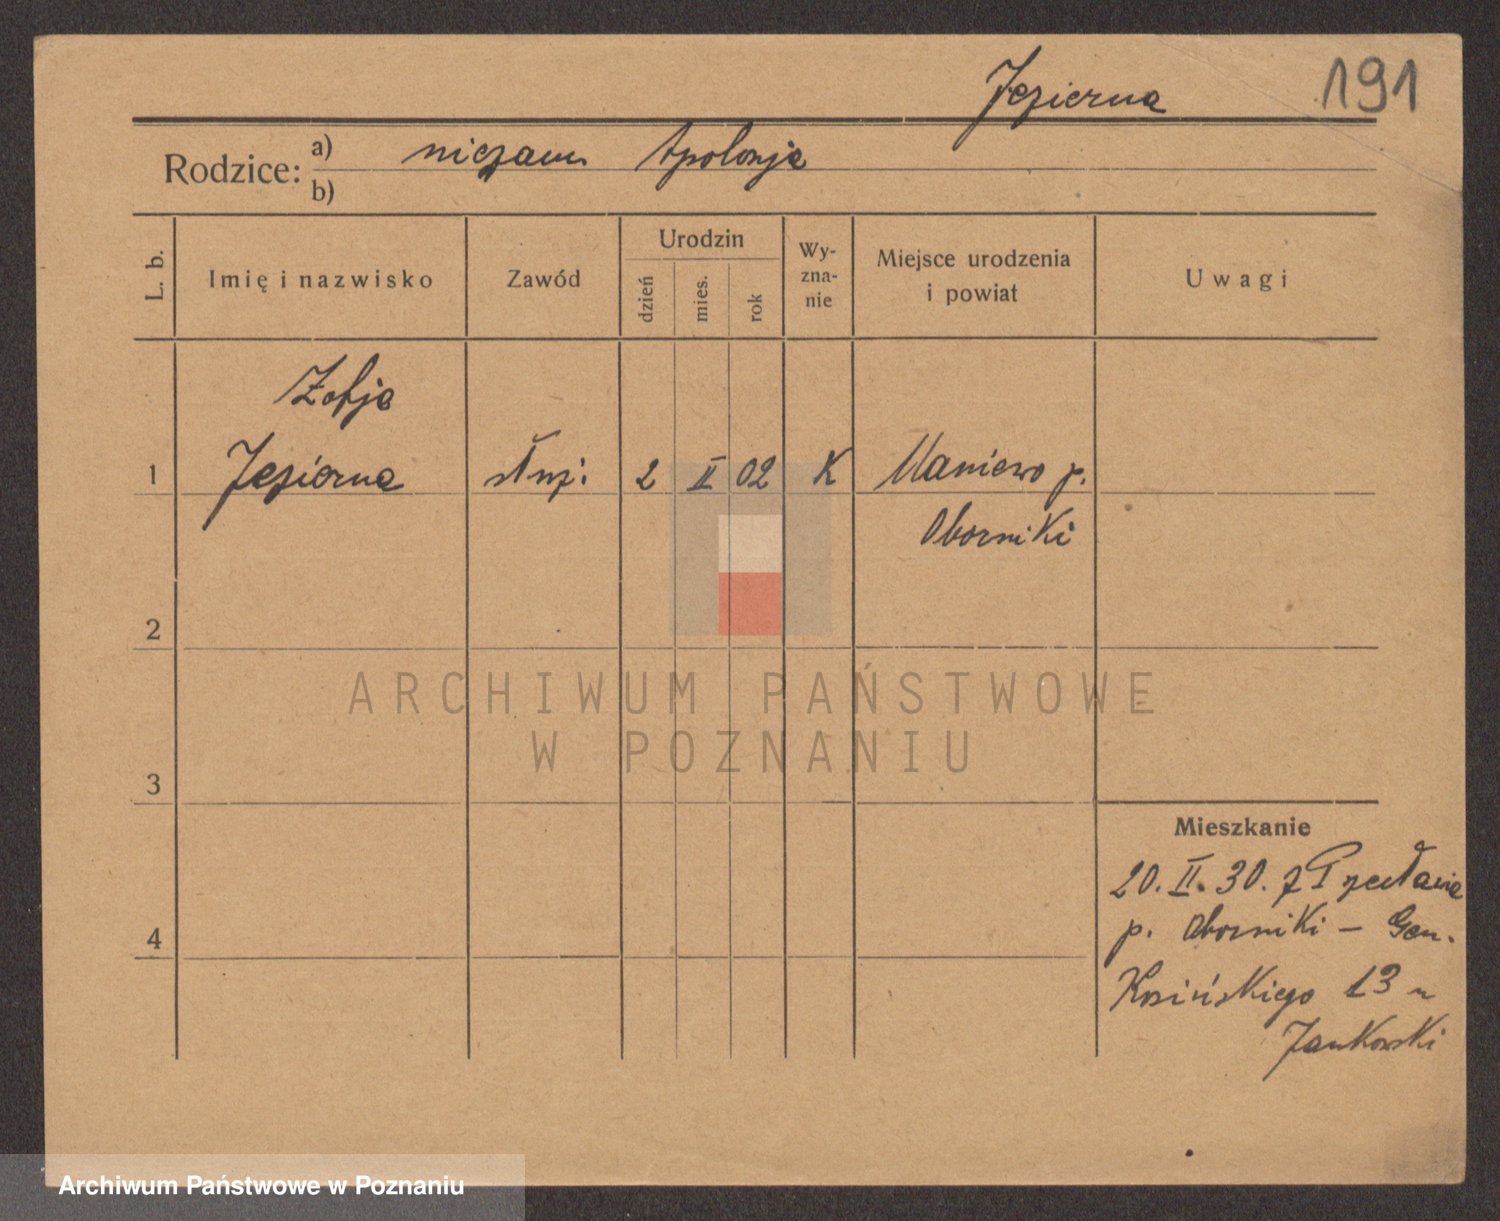 Jezierna 191
Rodzice: a) niezam Apolonja
b)
L. b. Imię i nazwisko Zawód Urodzin dzień mies. rok Wy-zna-nie Miejsce urodzenia i powiat Uwagi
Zofja
1 Jezierna służ. 2 II 02 K Maniewo p.
Oborniki
2
ARCHIWUM PAŃSTWOWE
W POZNANIU
3
Mieszkanie
20. II. 30. z Przecławia
4 p. Oborniki – Gen.
Kosińskiego 13 u
Jankowski
Archiwum Państwowe w Poznaniu